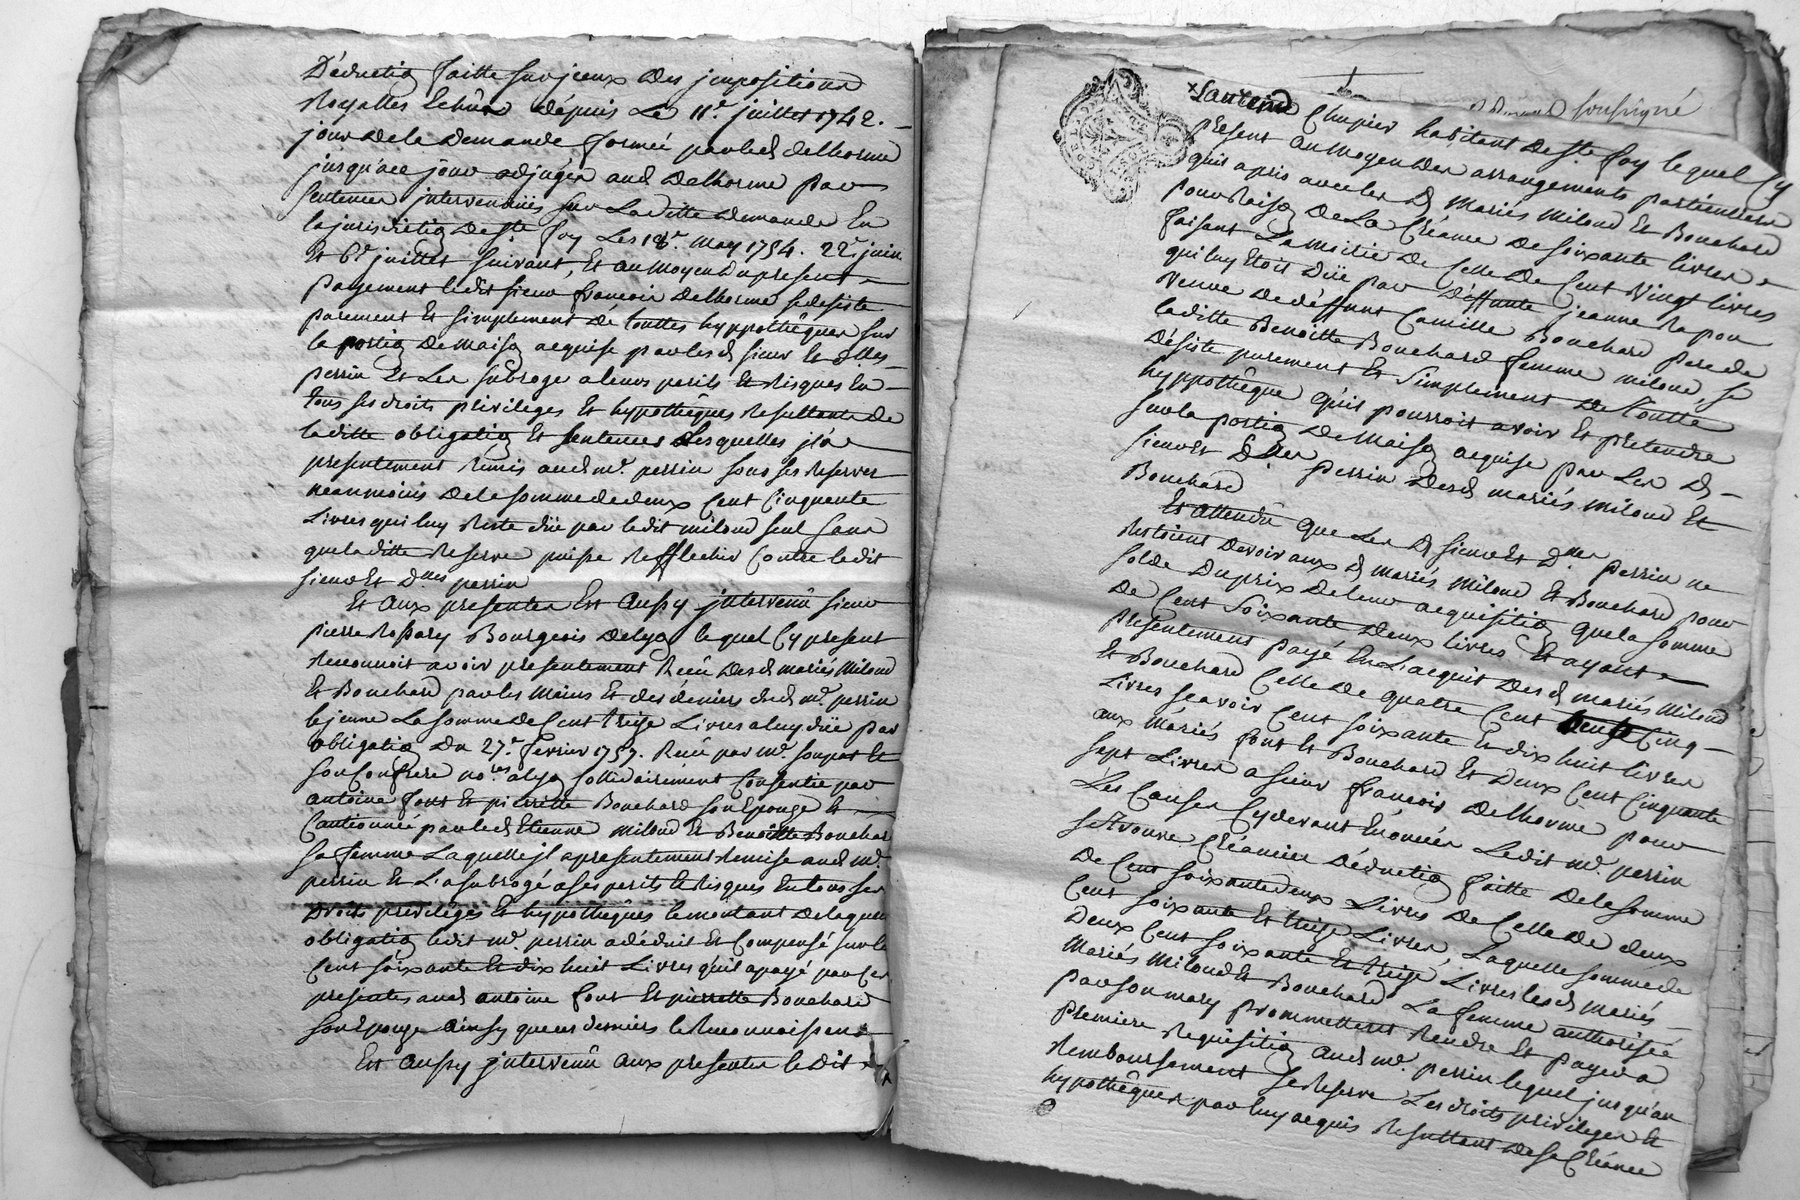 Déduction faitte sur jceux des jmpositions
Royalles Echües dépuis le 11.e juillet 1742.
jour de la demande formée par led. delhorme
jusqu'à ce jour adjugés aud. Delhorme par
sentences jntervenües sur laditte demande en
la jurisdiction de Ste. foy les 18e. may 1754. 22e. juin
Et 6e. juillet suivant, Et au moyen du present
payement ledit sieur francois Delhorme se desiste
purement Et simplement de touttes hyppothêques sur
la portion de maison acquise par lesd. sieur Et Dlles.
perrin Et les subroge a leurs perils Et Risques En
tous ses droits privileges Et hypothêques Resultants de
laditte obligation Et sentences desquelles jl a
presentement Remis aud. me. perrin sous ses Reserves
neanmoins de la somme de deux Cent Cinquante
Livres qui luy Reste düe par ledit miloud seul sans
que laditte Reserve puisse Refflechir Contre ledit
sieur Et Dlles perrin
Et aux presentes Est aussy jntervenû sieur
pierre Rossary Bourgeois de lyon lequel Cy present
Reconnoit avoir presentement Recû desd. mariés Miloud
Et Bouchard par les mains Et des déniers dud. me. perrin
le jeune La somme de Cent treize Livres a luy düe par
obligation Du 27.e fevrier 1757. Recüe par me. soupat Et
son Confrere nores. a lyon sollidairement Consentie par
antoine font Et pierrette Bouchard son Epouze Et
Cautionnée par led. Etienne miloud Et Benoitte Bouchard
sa femme Laquelle jl a presentement Remise aud. me.
perrin Et L'a subrogé a ses perils Et Risques En tous ses
Droits privilêges Et hypothêques le montant de laquelle
obligation ledit me. perrin a déduit Et Compensé sur les
Cent soixante Et dix huit Livres qu'il a payé par ces
presentes aud. antoine font Et pierrette Bouchard
son Epouze ainsy que ces derniers le Reconnoissent
Est aussy jntervenû aux presentes le dit
soussigné
Laurend Chupier habitant de Ste. foy lequel Cy
present au moyen des arrangements particuliers
qu'il a pris avec les d. Mariés Miloud Et Bouchard
pour Raison de La Créance de soixante livres
faisant La moitié de Celle de Cent Vingt livres
qui luy Etoit Düe par déffunte jeanne Rapou
Veuve de déffunt Camille Bouchard pere de
laditte Benoitte Bouchard femme miloud, se
Désiste purement Et simplement de Toutte
hyppothêque qu'il pourroit avoir Et prétendre
sur la portion de Maison acquise par Les d.
sieur Et Dlles perrin desd. mariés miloud Et
Bouchard
Et attendû que Les d. sieur Et Dlles perrin ne
Restoient devoir aux d. mariés Miloud Et Bouchard pour
solde du prix de leur acquisition que la somme
De Cent soixante deux livres Et ayant
presentement payé En L'acquit desd. mariés Miloud
Et Bouchard Celle de quatre Cent trente Cinq
Livres scavoir Cent soixante Et dix huit livres
aux Mariés font Et Bouchard Et Deux Cent Cinquante
sept Livres a sieur francois Delhorme pour
Les Causes Cy devant Enoncées Ledit me. perrin
se trouve Créancier Déduction faitte de la somme
De Cent soixante deux Livres De Celle de deux
Cent soixante Et treize Livres, Laquelle somme de
Deux Cent soixante Et treize Livres lesd. mariés
Mariés Miloud Et Bouchard La femme authorisée
par son mary promettent Rendre Et payer a
premiere Requisition aud. me. perrin lequel jusqu'au
Remboursement se Reserve Les droits privileges Et
hypothêques par luy acquis Resultants de sa Créance